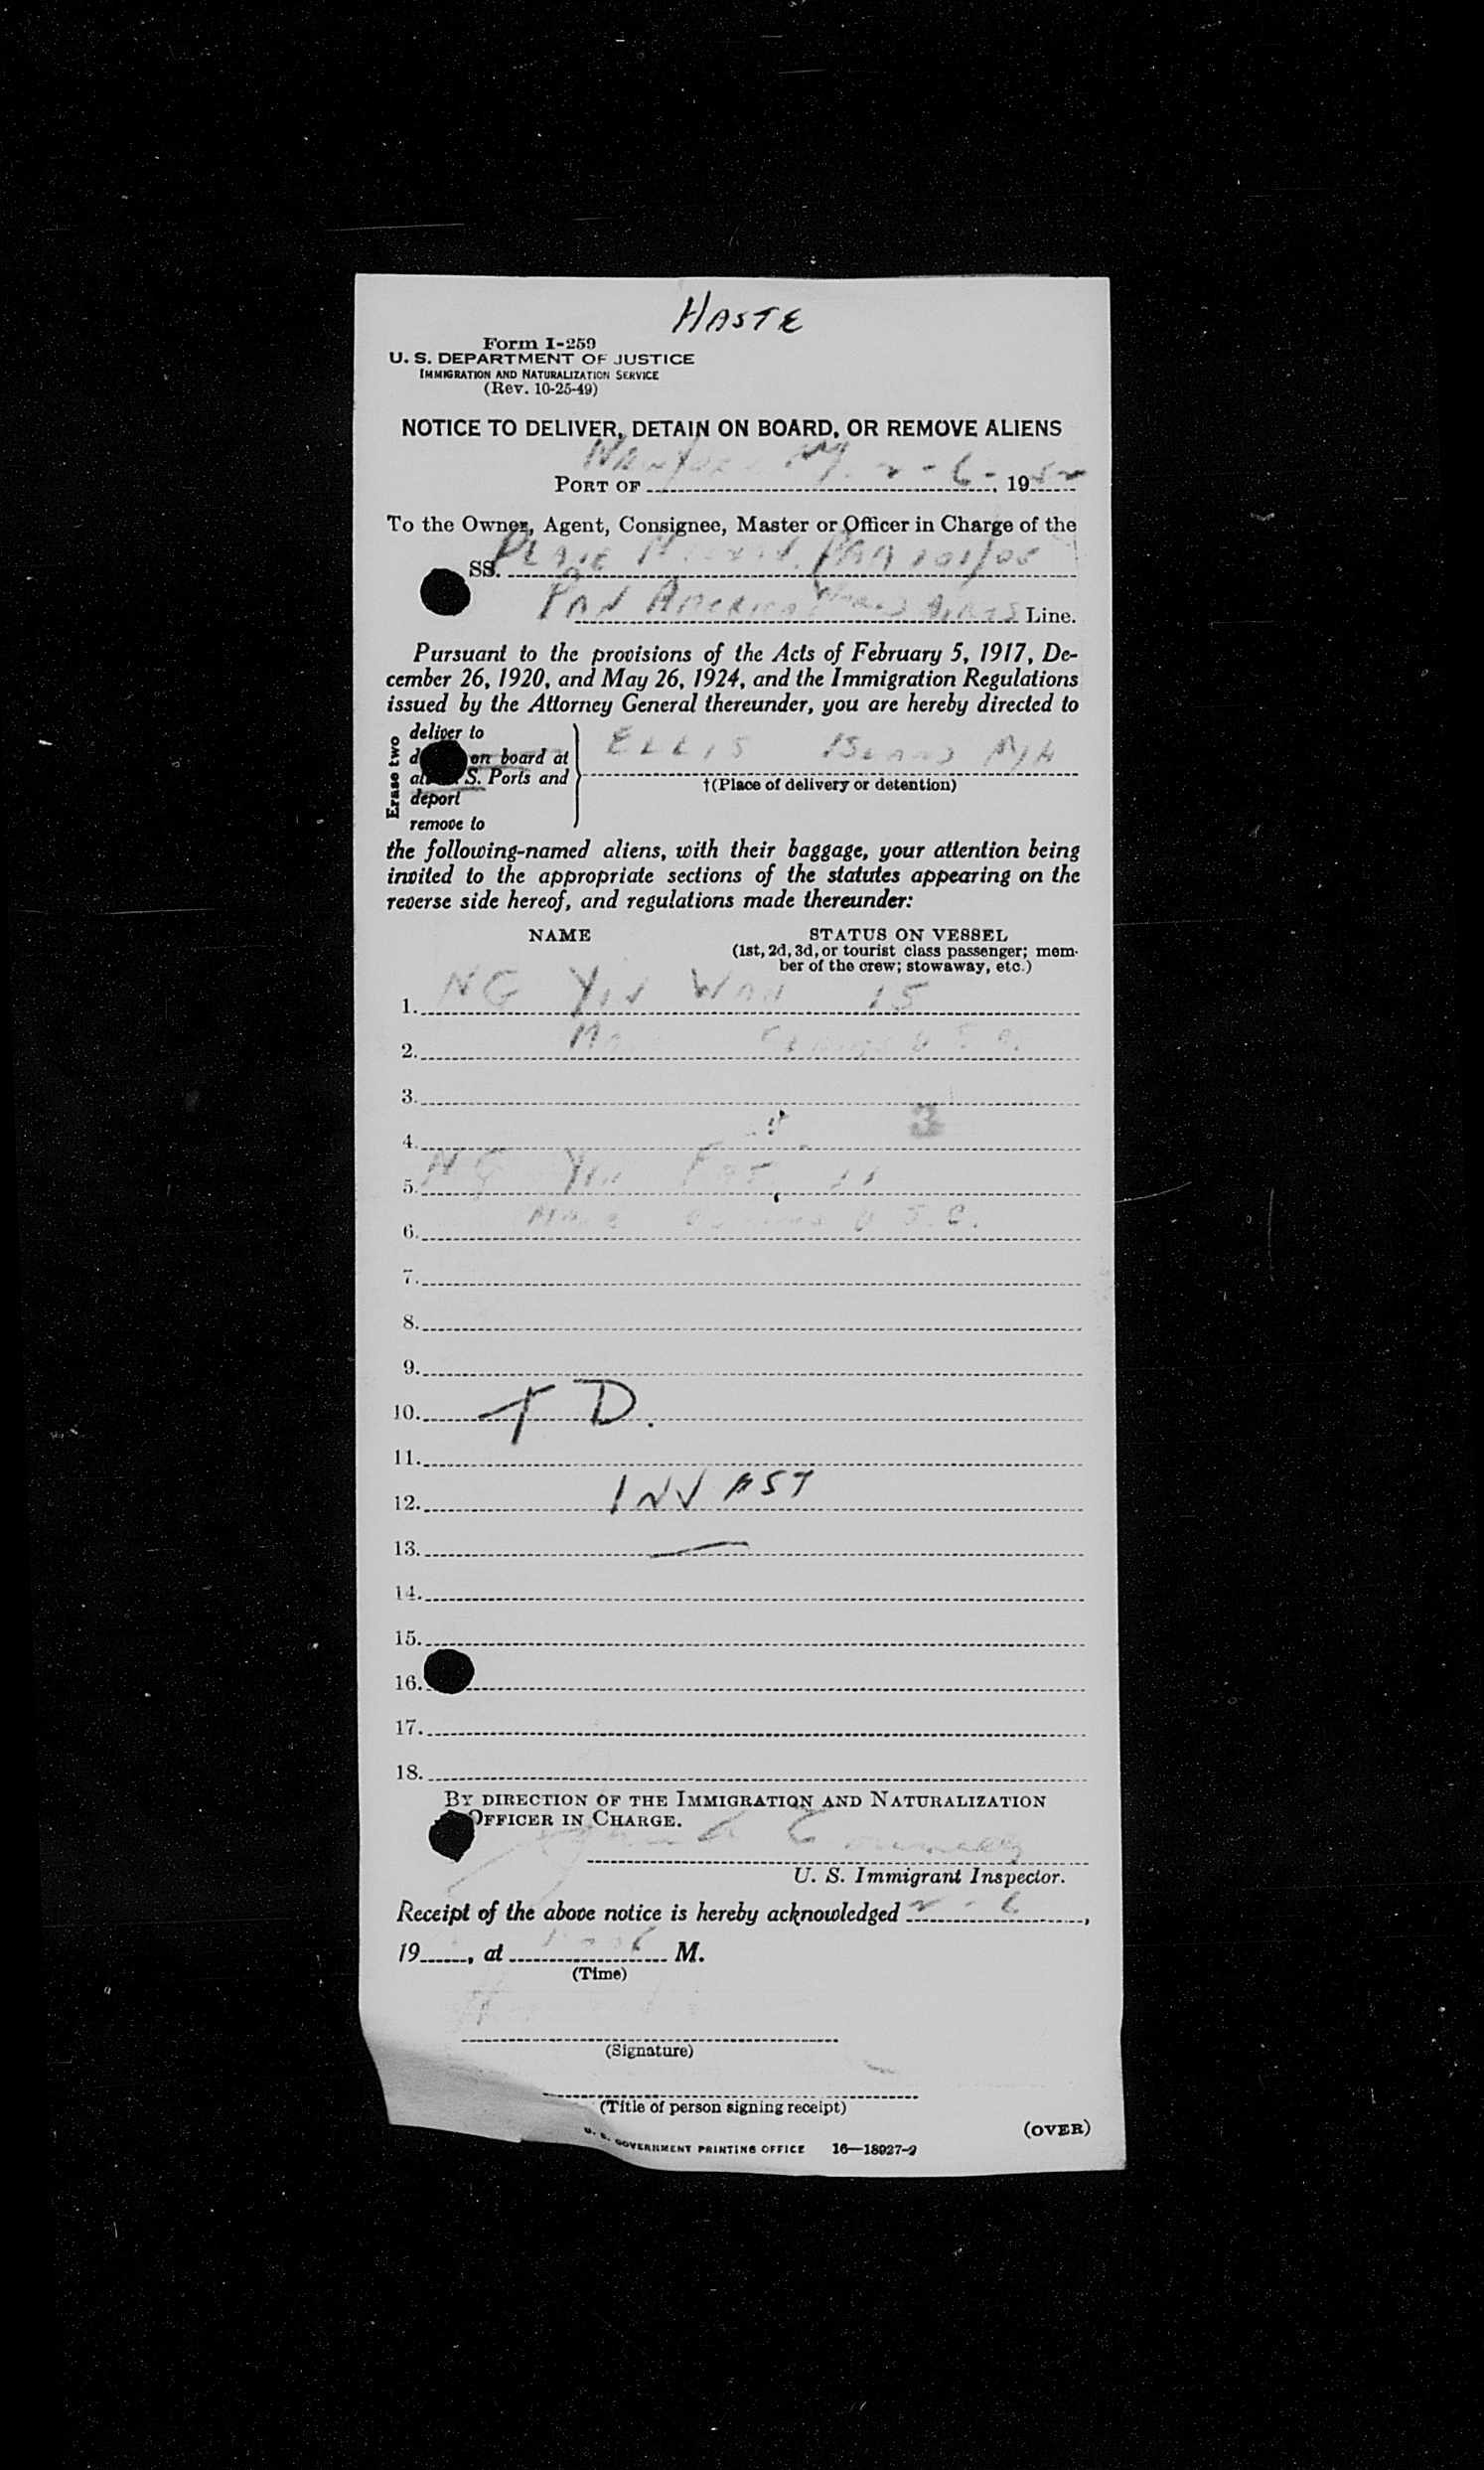 HASTE
Form I-259
U. S. DEPARTMENT OF JUSTICE
IMMIGRATION AND NATURALIZATION SERVICE
(Rev. 10-25-49)
NOTICE TO DELIVER, DETAIN ON BOARD, OR REMOVE ALIENS
PORT OF New York NY. 2-6-, 1952
To the Owner, Agent, Consignee, Master or Officer in Charge of the
SS. PLANE PAA 101/05
PAN AMERICAN WORLD AIRWS Line.
Pursuant to the provisions of the Acts of February 5, 1917, De-
cember 26, 1920, and May 26, 1924, and the Immigration Regulations
issued by the Attorney General thereunder, you are hereby directed to
Erase two
deliver to
on board at
S. Ports and
deport
remove to
ELLIS ISLAND NYH
†(Place of delivery or detention)
the following-named aliens, with their baggage, your attention being
invited to the appropriate sections of the statutes appearing on the
reverse side hereof, and regulations made thereunder:
NAME STATUS ON VESSEL
(1st, 2d, 3d, or tourist class passenger; mem-
ber of the crew; stowaway, etc.)
1. NG YIN WAH 15
2. MALE CLAIMS U S C.
3.
4. 3
5. NG YIN FAT. 11
6. MALE CLAIMS U S.C.
7.
8.
9.
10. T D.
11.
12. INV AST
13.
14.
15.
16.
17.
18.
BY DIRECTION OF THE IMMIGRATION AND NATURALIZATION
OFFICER IN CHARGE.
U. S. Immigrant Inspector.
Receipt of the above notice is hereby acknowledged 2-6,
19, at M.
(Time)
(Signature)
(Title of person signing receipt)
(OVER)
U. S. GOVERNMENT PRINTING OFFICE 16—18927-2